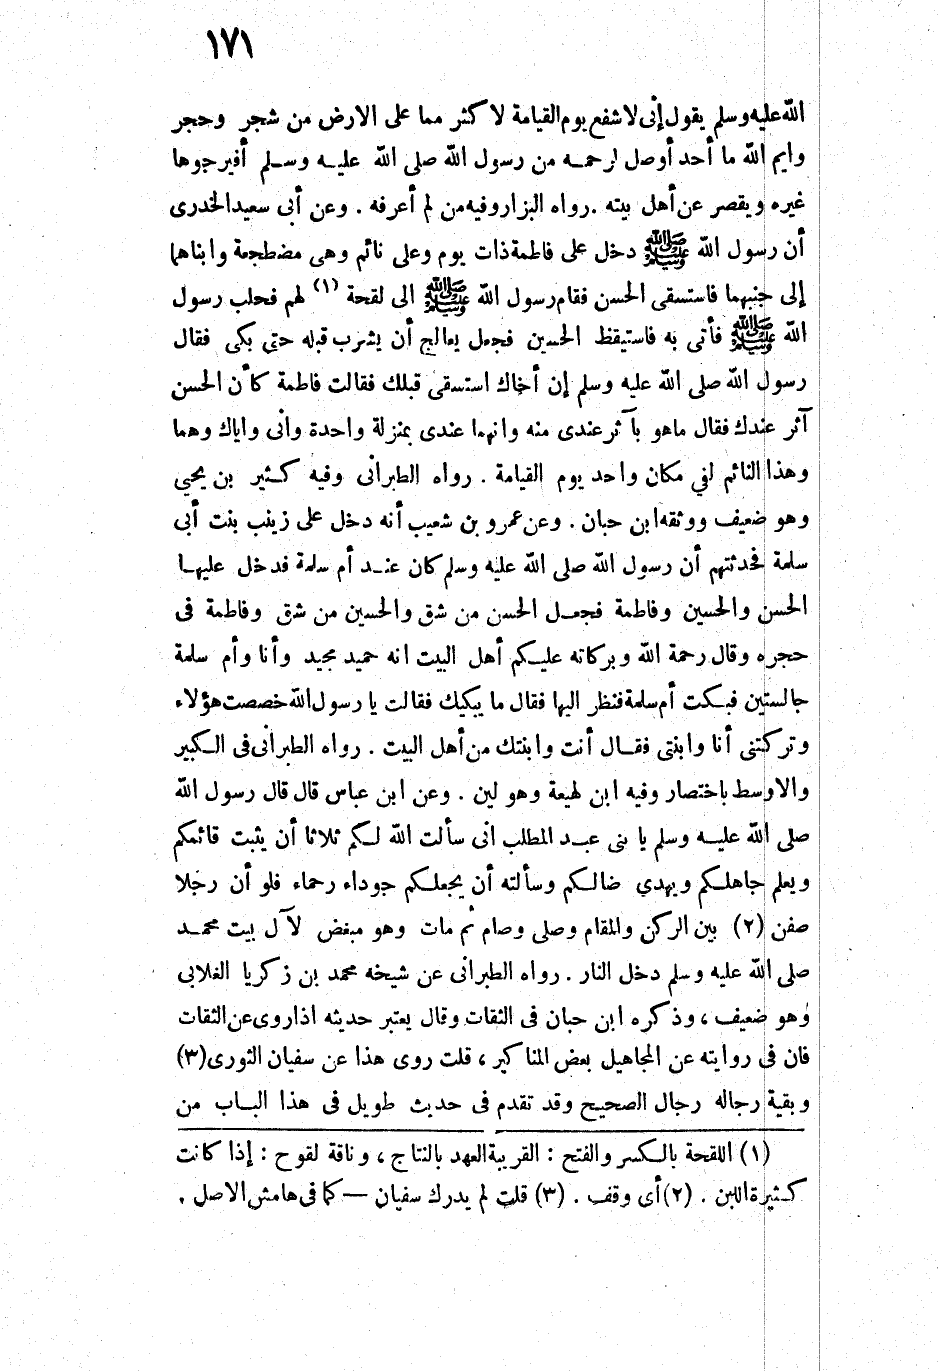 ١٧١
الله عليه وسلم يقول إنى لاشفع يوم القيامة لا كثر مما على الارض من شجر وحجر
وايم الله ما أحد أوصل لرحمه من رسول الله صلى الله عليه وسلم أفيرجوها
غيره ويقصر عن أهل بيته . رواه البزار وفيه من لم أعرفه . وعن أبى سعيد الخدرى
أن رسول الله ﷺ دخل على فاطمة ذات يوم وعلى نائم وهى مضطجعة وابناها
إلى جنبهما فاستسقى الحسن فقام رسول الله ﷺ الى لقحة (١) لهم فحلب رسول
الله ﷺ فأتى به فاستيقظ الحسين فجعل يعالج أن يشرب قبله حتى بكى فقال
رسول الله صلى الله عليه وسلم إن أخاك استسقى قبلك فقالت فاطمة كأن الحسن
آثر عندك فقال ماهو بآثر عندى منه وانهما عندى بمنزلة واحدة وأنى واياك وهما
وهذا النائم لفي مكان واحد يوم القيامة . رواه الطبرانى وفيه كثير بن يحيي
وهو ضعيف ووثقه ابن حبان . وعن عمرو بن شعيب أنه دخل على زينب بنت أبى
سلمة فحدثتهم أن رسول الله صلى الله عليه وسلم كان عند أم سلمة فدخل عليها
الحسن والحسين وفاطمة فجعل الحسن من شق والحسين من شق وفاطمة فى
حجره وقال رحمة الله وبركاته عليكم أهل البيت انه حميد مجيد وأنا وأم سلمة
جالستين فبكت أم سلمة فنظر اليها فقال ما يبكيك فقالت يا رسول الله خصصت هؤلاء
وتركتنى أنا وابنتى فقال أنت وابنتك من أهل البيت . رواه الطبرانى فى الكبير
والاوسط باختصار وفيه ابن لهيعة وهو لين . وعن ابن عباس قال قال رسول الله
صلى الله عليه وسلم يا بنى عبد المطلب انى سألت الله لكم ثلاثا أن يثبت قائمكم
ويعلم جاهلكم ويهدي ضالكم وسألته أن يجعلكم جوداء رحماء فلو أن رجلا
صفن (٢) بين الركن والمقام وصلى وصام ثم مات وهو مبغض لآل بيت محمد
صلى الله عليه وسلم دخل النار . رواه الطبرانى عن شيخه محمد بن زكريا الغلابى
وهو ضعيف ، وذكره ابن حبان فى الثقات وقال يعتبر حديثه اذا روى عن الثقات
فان فى روايته عن المجاهيل بعض المناكير ، قلت روى هذا عن سفيان الثورى (٣)
وبقية رجاله رجال الصحيح وقد تقدم فى حديث طويل فى هذا الباب من
(١) اللقحة بالكسر والفتح : القريبة العهد بالنتاج ، وناقة لقوح : إذا كانت
كثيرة اللبن . (٢) أى وقف . (٣) قلت لم يدرك سفيان — كما فى هامش الاصل .